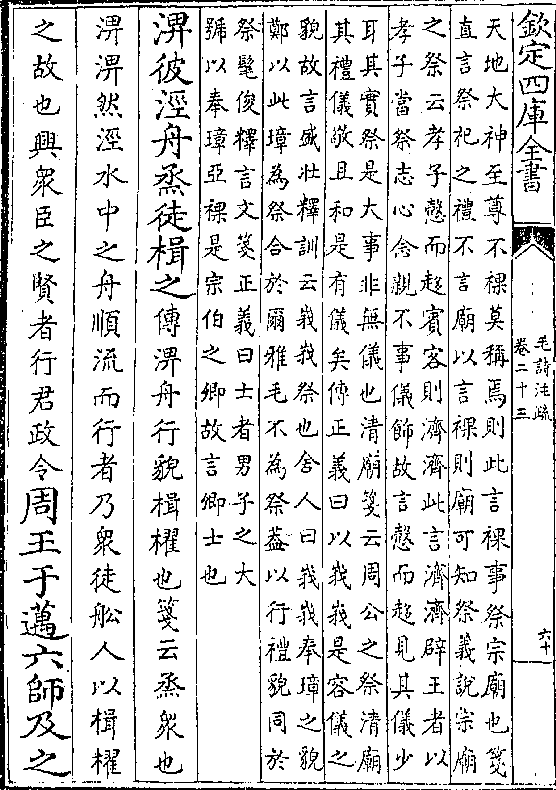 欽定四庫全書
毛詩注疏
卷二十三
六十
天地大神至尊不祼莫稱焉則此言祼事祭宗廟也箋
直言祭祀之禮不言廟以言祼則廟可知祭義說宗廟
之祭云孝子慤而趨賓客則濟濟此言濟濟辟王者以
孝子當祭志心念親不事儀飾故言慤而趨見其儀少
耳其實祭是大事非無儀也清廟箋云周公之祭清廟
其禮儀敬且和是有儀矣傳正義曰以峩峩是容儀之
貌故言盛壯釋訓云峩峩祭也舍人曰峩峩奉璋之貌
鄭以此璋為祭合於爾雅毛不為祭葢以行禮貌同於
祭髦俊釋言文箋正義曰士者男子之大
號以奉璋亞祼是宗伯之卿故言卿士也
淠彼涇舟烝徒楫之傳淠舟行貌楫櫂也箋云烝衆也
淠淠然涇水中之舟順流而行者乃衆徒舩人以楫櫂
之故也興衆臣之賢者行君政令周王于邁六師及之